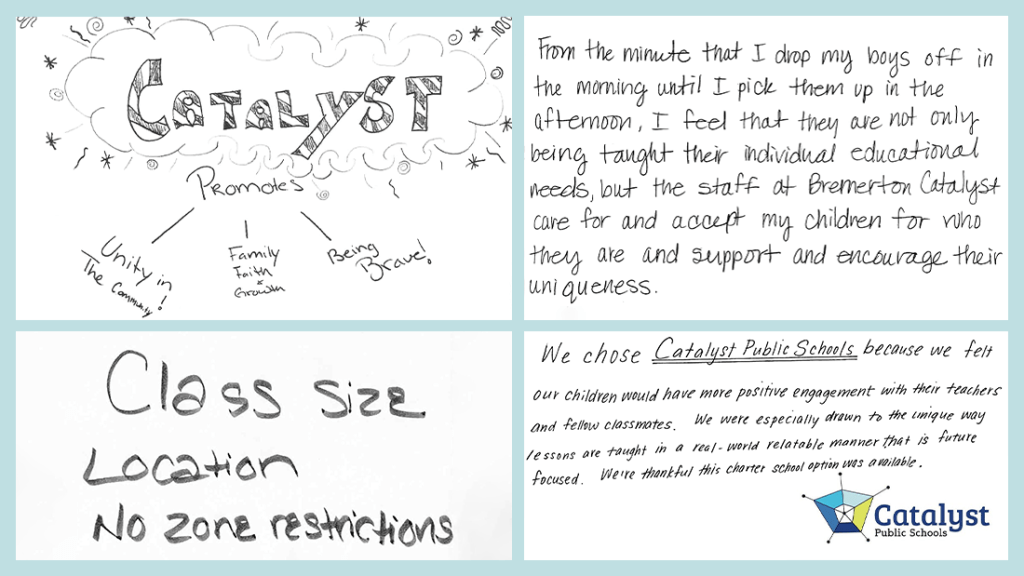 CATALYST
PROMOTES
Unity in
The Community!
Family
Faith
&
Growth
Being
Brave!
From the minute that I drop my boys off in
the morning until I pick them up in the
afternoon, I feel that they are not only
being taught their individual educational
needs, but the staff at Bremerton Catalyst
care for and accept my children for who
they are and support and encourage their
uniqueness.
Class size
Location
No zone restrictions
We chose Catalyst Public Schools because we felt
our children would have more positive engagement with their teachers
and fellow classmates. We were especially drawn to the unique way
lessons are taught in a real-world relatable manner that is future
focused. We're thankful this charter school option was available.
Catalyst
Public Schools